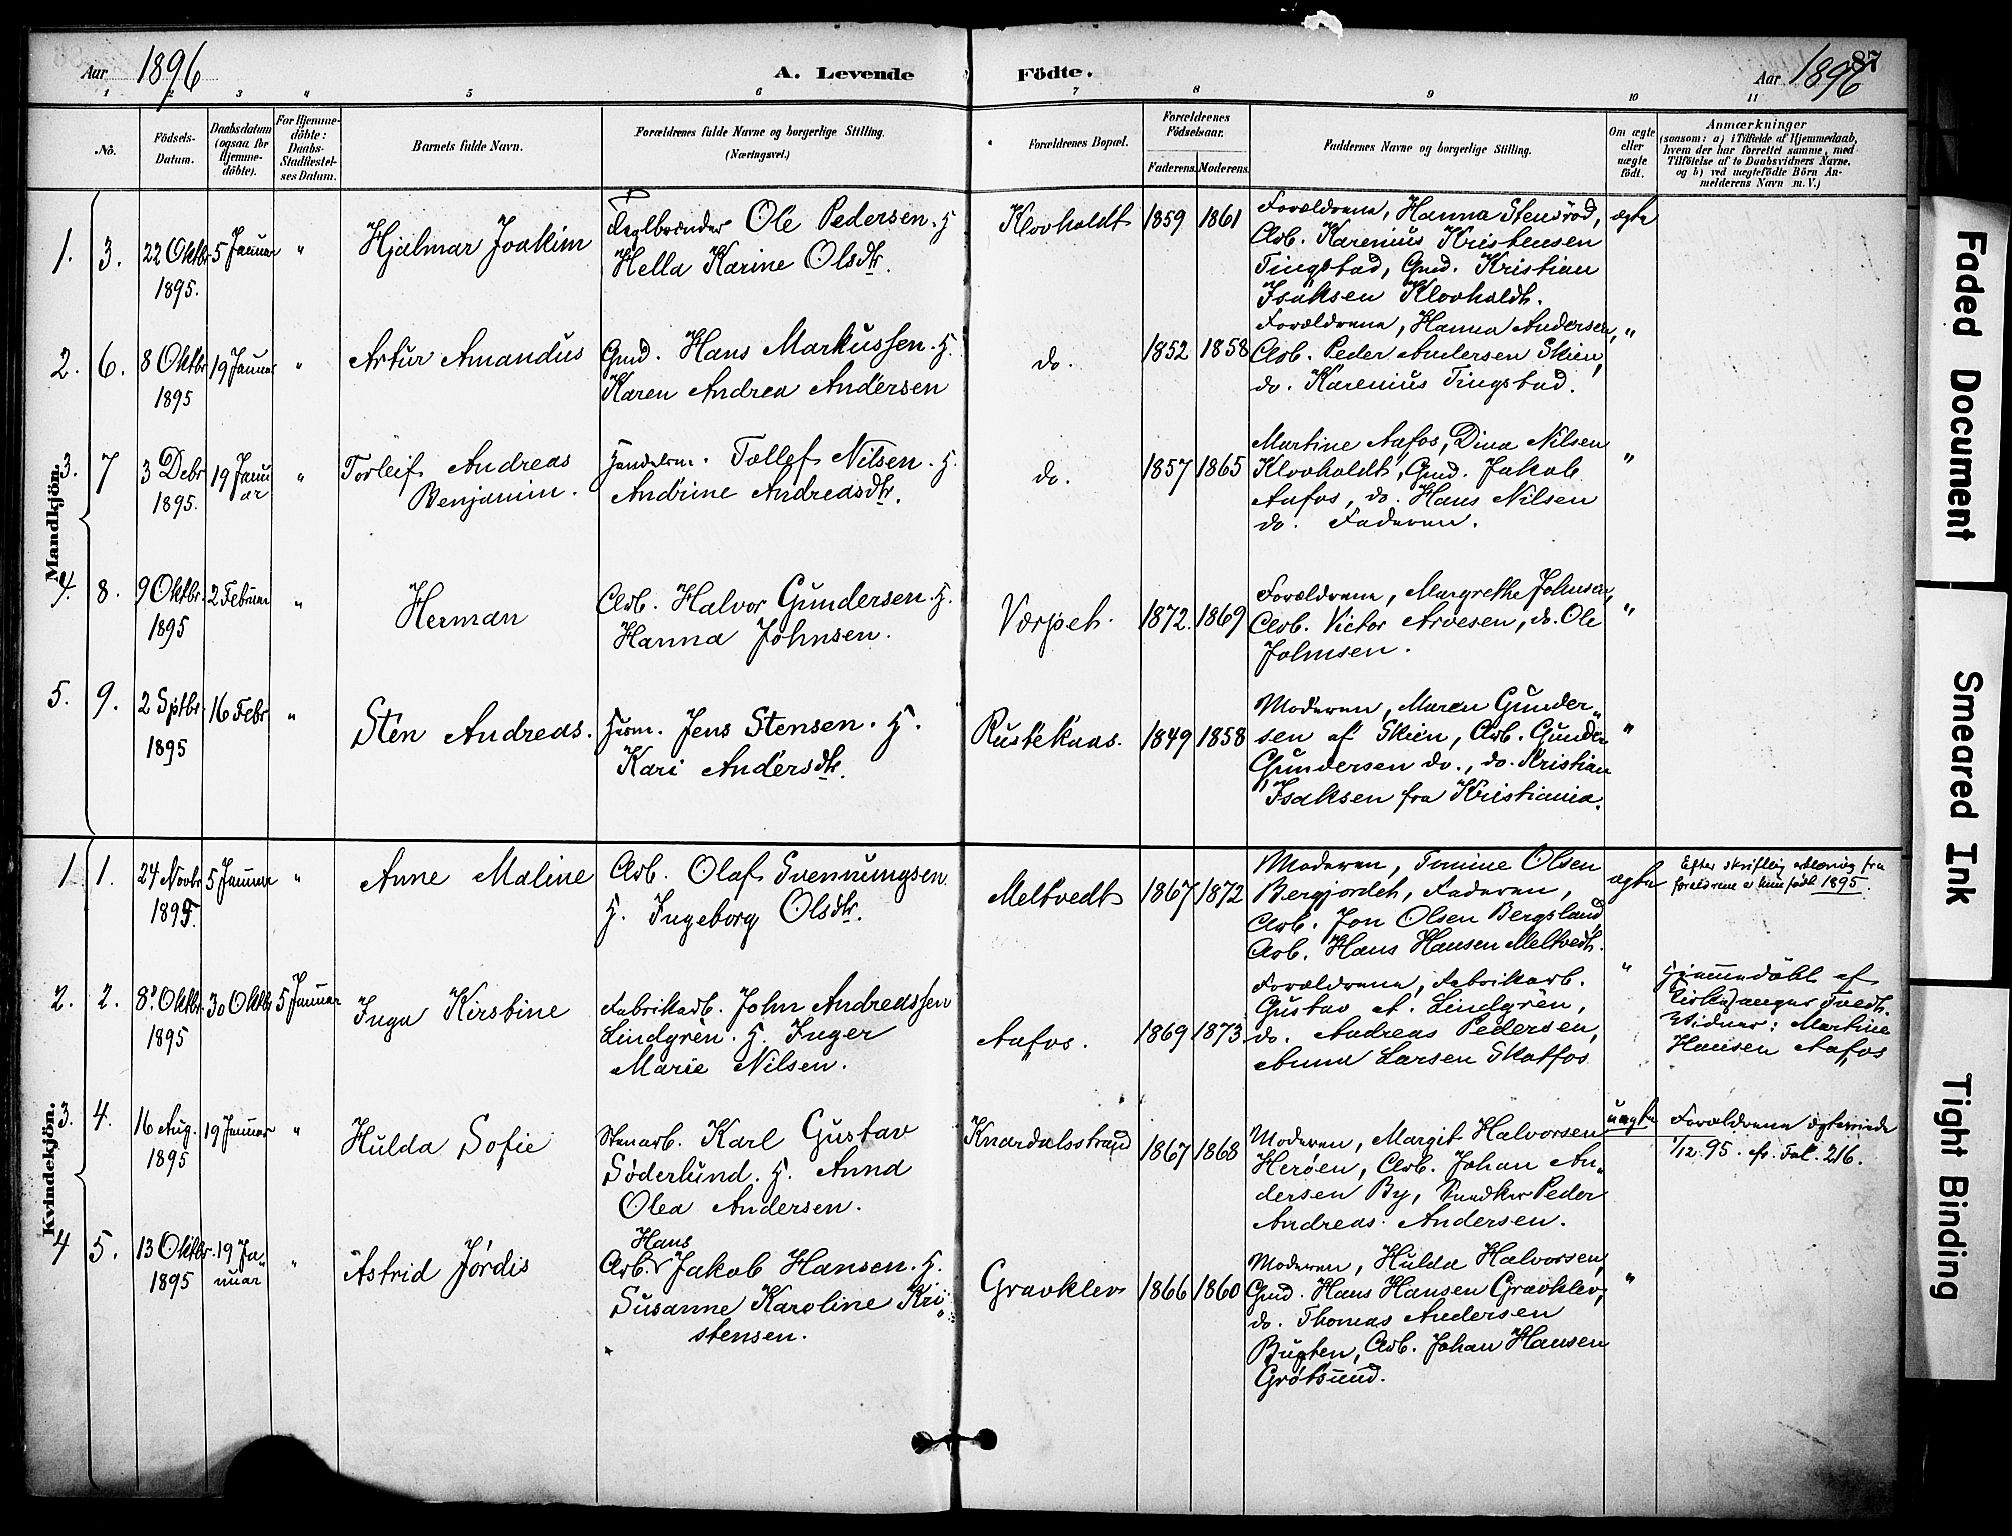 Aar 1896
A. Levende Födte.
Aar 1896
87
1 2 3 4 5 6 7 8 9 10 11
No.
Födsels-Datum.
Daabsdatum (ogsaa for Hjemme-döbte).
For Hjemme-döbte: Daabs-Stadfæstel-ses Datum.
Barnets fulde Navn.
Forældrenes fulde Navne og borgerlige Stilling.
(Næringsvei.)
Forældrenes Bopæl.
Forældrenes Födselsaar.
Faderens. Moderens.
Faddernes Navne og borgerlige Stilling.
Om ægte eller uægte födt.
Anmærkninger
(saasom: a) i Tilfælde af Hjemmedaab,
hvem der har forrettet samme, med
Tilföielse af to Daabsvidners Navne,
og b) ved uægtefödte Börn An-
melderens Navn m. V.)
Mandkjön.
1. 3. 22 Oktbr 1895. 5 Januar " Hjalmar Joakim
Teglbrænder Ole Pedersen. H.
Hella Karine Olsdtr.
Klovholdt 1859 1861
Forældrene, Hanna Stensrød,
Arb. Karenius Kristensen
Tingstad, Gmd. Kristian
Isaksen Klovholdt.
ægte
2. 6. 8 Oktbr 1895 19 Januar " Artur Amandus
Gmd. Hans Markussen. H.
Karen Andrea Andersen
do. 1852 1858
Forældrene, Hanna Andersen,
Arb. Peder Andersen Skien,
do. Karenius Tingstad.
"
3. 7 3 Debr 1895. 19 Januar " Torleif Andreas
Benjamin.
Handelsm. Tollef Nilsen. H.
Andrine Andreasdtr.
do. 1857 1865
Martine Aafos, Dina Nilsen
Klovholdt, Gmd. Jakob
Aafos, do. Hans Nilsen
do. Faderen.
"
4. 8. 9 Oktbr. 1895 2 Februar " Herman
Arb. Halvor Gundersen. H.
Hanna Johnsen.
Værpet. 1872. 1869
Forældrene, Margrethe Johnsen,
Arb. Victor Arvesen, do. Ole
Johnsen.
"
5. 9. 2 Sptbr. 1895 16 Febr " Sten Andreas.
Husm. Jens Stensen. H.
Kari Andersdtr.
Rustekaas. 1849 1858
Moderen, Maren Gunder-
sen af Skien, Arb. Gunder
Gundersen do., do. Kristian
Isaksen fra Kristiania.
"
Kvindekjön.
1 1. 24 Novbr 1895. 5 Januar " Anne Maline
Arb. Olaf Svennungsen
H. Ingeborg Olsdtr.
Meltvedt 1867 1872
Moderen, Tomine Olsen
Bergjordet, Faderen,
Arb. Jon Olsen Bergsland
Arb. Hans Hansen Meltvedt.
ægte
Efter skriftlig erklæring fra
foreldrene er hun født 1895.
2. 2. 8. Oktbr. 1895 30 Oktbr 5 Januar Inga Kirstine
Fabrikarb. John Andreassen
Lindgrén. H. Inger
Marie Nilsen.
Aafos. 1869 1873.
Forældrene, Fabrikarb.
Gustav A. Lindgrén,
do. Andreas Pedersen,
Anna Larsen Skotfos
"
Hjemmedöbt af
Kirkesanger Tvedt.
Vidner: Martine
Hansen Aafos
3. 4. 16 Aug. 1895 19 Januar " Hulda Sofie
Stenarb. Karl Gustav
Söderlund. H. Anna
Olea Andersen.
Knardalsstrand 1867 1868
Moderen, Margit Halvorsen
Herøen, Arb. Johan An-
dersen By, Snedker Peder
Andreas Andersen.
uægte
Forældrene ægteviede
1/12 95. cfr. Fol. 216.
4 5. 13 Oktbr. 1895 19 Ja-
nuar " Astrid Jørdis
Hans
Arb. Jakob Hansen. H.
Susanne Karoline Kri-
stensen.
Gravklev 1866 1860
Moderen, Hulda Halvorsen,
Gmd. Hans Hansen Gravklev,
do. Thomas Andersen
Bugten, Arb. Johan Hansen
Grøtsund.
"
Faded Document
Smeared Ink
Tight Binding